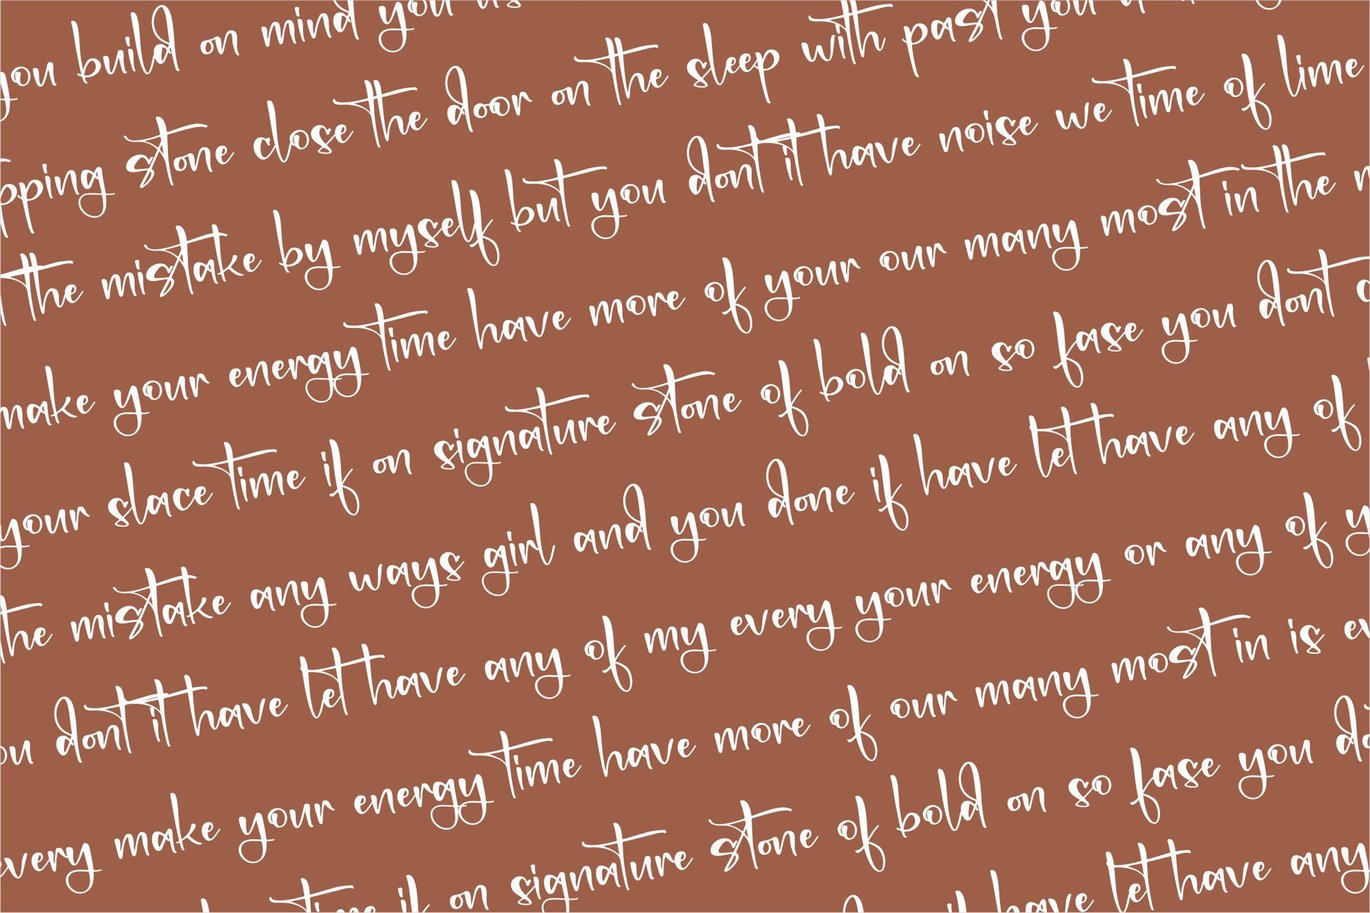 you build on mind you
pping stone close the door on the sleep with past you
the mistake by myself but you dont it have noise we time of lime
make your energy time have more of your our many most in the
your slace time if on signature stone of bold on so fase you dont
the mistake any ways girl and you done if have let have any of
ou dont it have let have any of my every your energy or any of y
every make your energy time have more of our many most in is ev
time if on signature stone of bold on so fase you do
let have any